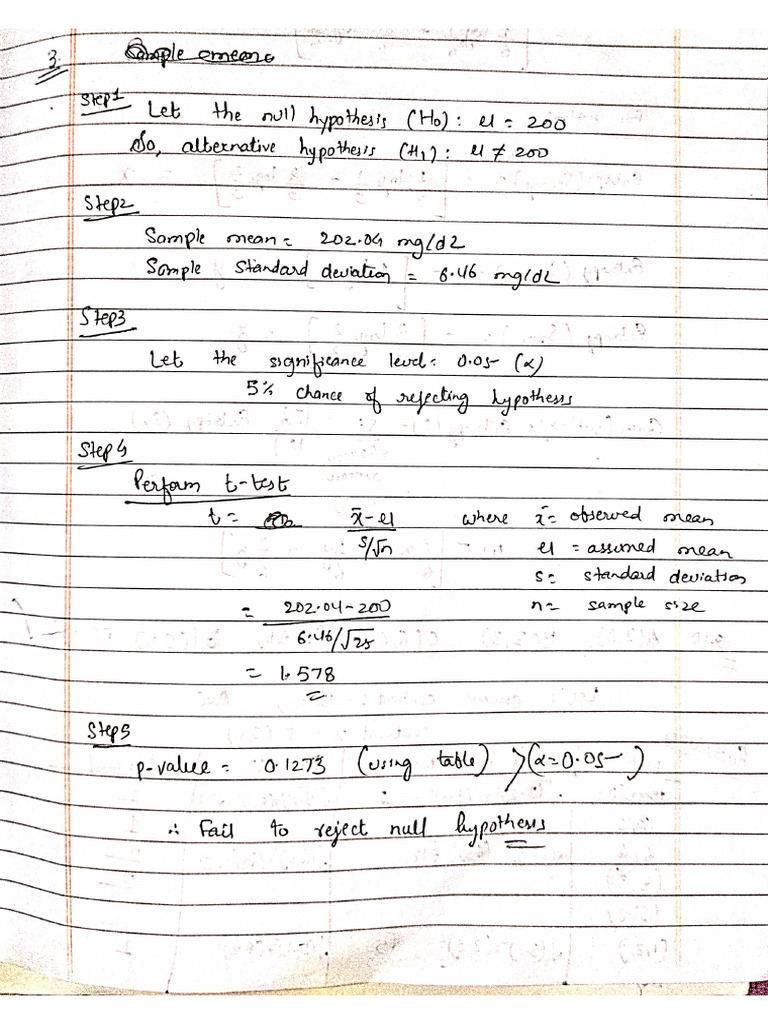 3.
Sample mean
Step1
Let the null hypothesis (H0): μ = 200
So, alternative hypothesis (H1): μ ≠ 200
Step2
Sample mean = 202.04 mg/dL
Sample standard deviation = 6.46 mg/dL
Step3
Let the significance level = 0.05 (α)
5% chance of rejecting hypothesis
Step4
Perform t-test
t = x̄ - μ where x̄ = observed mean
s/√n μ = assumed mean
s = standard deviation
= 202.04 - 200 n = sample size
6.46/√25
= 1.578
Step5
p-value = 0.1273 (using table) > (α = 0.05)
∴ Fail to reject null hypothesis